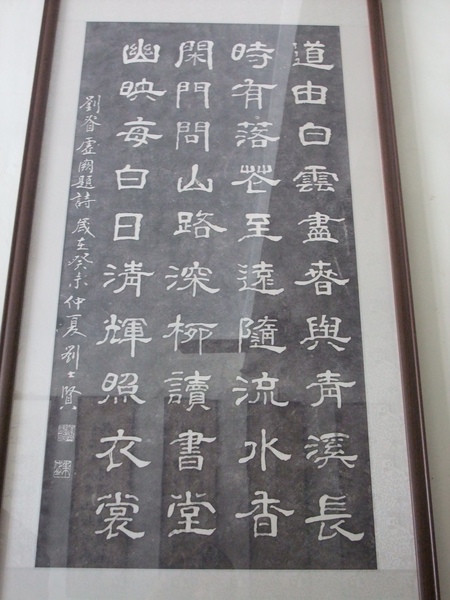 道由白雲盡春與青溪長
時有落花至遠隨流水香
閑門問山路深柳讀書堂
幽映每白日清輝照衣裳
劉眘虛闕題詩 歲在癸未仲夏 劉士賢